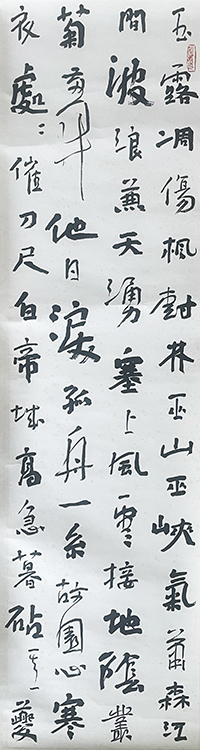 玉露凋傷楓樹林巫山巫峽氣蕭森江
間波浪兼天湧塞上風雲接地陰叢
菊兩開他日淚孤舟一系故園心寒
衣處：催刀尺白帝城高急暮砧